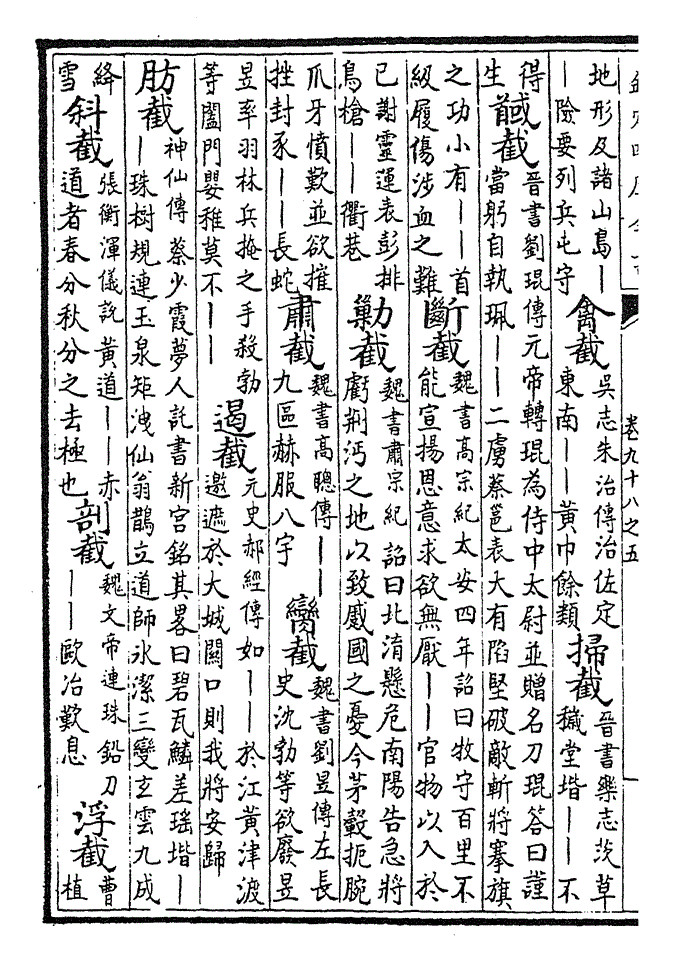 欽定四庫全書
卷九十八之五
地形及諸山島丨
丨險要列兵屯守
禽截
吳志朱治傳治佐定
東南丨丨黃巾餘類
掃截
晉書樂志茨草
穢堂堦丨丨不
得
生
馘截
晉書劉琨傳元帝轉琨為侍中太尉並贈名刀琨答曰謹
當躬自執珮丨丨二虜蔡邕表大有陷堅破敵斬將搴旗
之功小有丨丨首
級履傷涉血之難
斷截
魏書高宗紀太安四年詔曰牧守百里不
能宣揚恩意求欲無厭丨丨官物以入於
已謝靈運表彭排
烏槍丨丨衢巷
勦截
魏書肅宗紀詔曰北淯懸危南陽告急將
虧荆沔之地以致蹙國之憂今茅轂扼腕
爪牙憤歎並欲摧
挫封豕丨丨長蛇
肅截
魏書高聰傳丨丨
九區赫服八宇
臠截
魏書劉昱傳左長
史沈勃等欲廢昱
昱率羽林兵掩之手殺勃
等闔門嬰稚莫不丨丨
遏截
元史郝經傳如丨丨於江黃津渡
邀遮於大城關口則我將安歸
肪截
神仙傳蔡少霞夢人託書新宮銘其畧曰碧瓦鱗差瑤堦丨
丨珠樹規連玉泉矩洩仙翁鵲立道師氷潔三變玄雲九成
絳
雪
斜截
張衡渾儀說黃道丨丨赤
道者春分秋分之去極也
剖截
魏文帝連珠鉛刀
丨丨歐冶歎息
浮截
曹
植